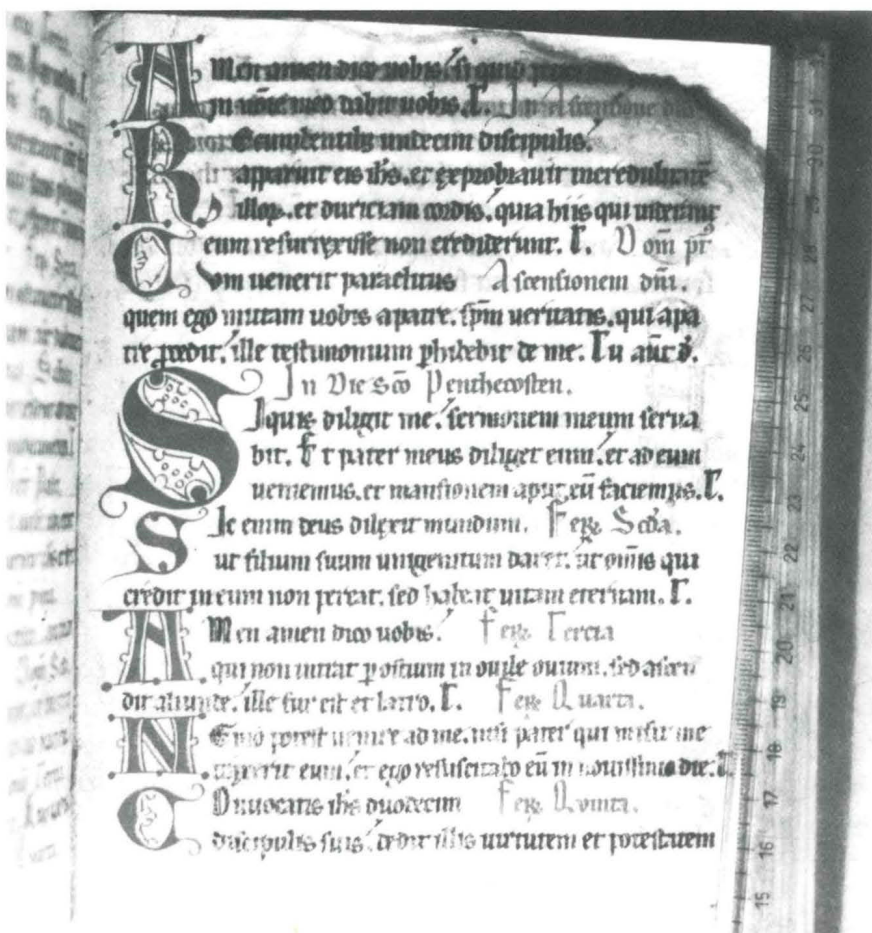 Amen amen dico uobis. si quid
in noīe meo dabit uobis. T.
Recumbentibꝰ undecim discipulis.
apparuit eis ihs. et exprobrauit incredulitatē
illoꝝ. et duriciam cordis. quia hiis qui uiderunt
eum resurrexisse non crediderunt. T. Dom pꝛ
Cum uenerit paraclitus Ascensionem dn̄i.
quem ego mittam uobis a patre. sp̄m ueritatis. qui a pa
tre ꝓcedit. ille testimonium phibebit de me. Tu aut d.
In Die Sc̄o Penthecosten.
Si quis diligit me. sermonem meum serua
bit. Et pater meus diliget eum. et ad eum
ueniemus. et mansionem apud eū faciemus. T.
Sic enim deus dilexit mundum. Feꝝ Scd̄a.
ut filium suum unigenitum daret. ut omīs qui
credit in eum non pereat. sed habeat uitam eternam. T.
Amen amen dico uobis. Feꝝ Tercia
qui non intrat ꝑ ostium in ouile ouium. sed ascen
dit aliunde. ille fur est et latro. T. Feꝝ Quarta.
Nemo potest uenire ad me. nisi pater qui misit me
traxerit eum. et ego resuscitabo eū in nouissimo die. T.
Conuocatis ihs duodecim Feꝝ Quinta.
discipulis suis. dedit illis uirtutem et potestatem
31
30
29
28
27
26
25
24
23
22
21
20
19
18
17
16
15